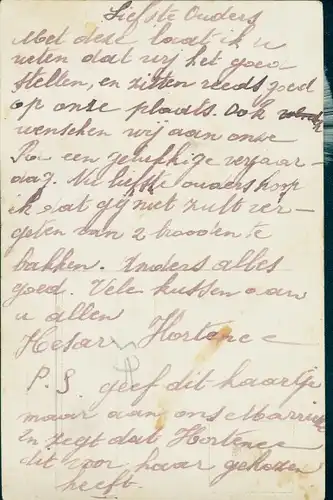 Liefste Ouders
Met deze laat ik u
weten dat wij het goed
stellen, en zitten reeds goed
op onze plaats. Ook
wenschen wij aan onze
Pa een gelukkige verjaar-
dag. Nu liefste ouders hoop
ik dat gij niet zult ver-
geten van 2 brooden te
bakken. Anders alles
goed. Vele kussen aan
u allen
Hortence
P.S. geef dit kaartje
maar aan ons
en zegt dat Hortence
dit voor haar gekozen
heeft.